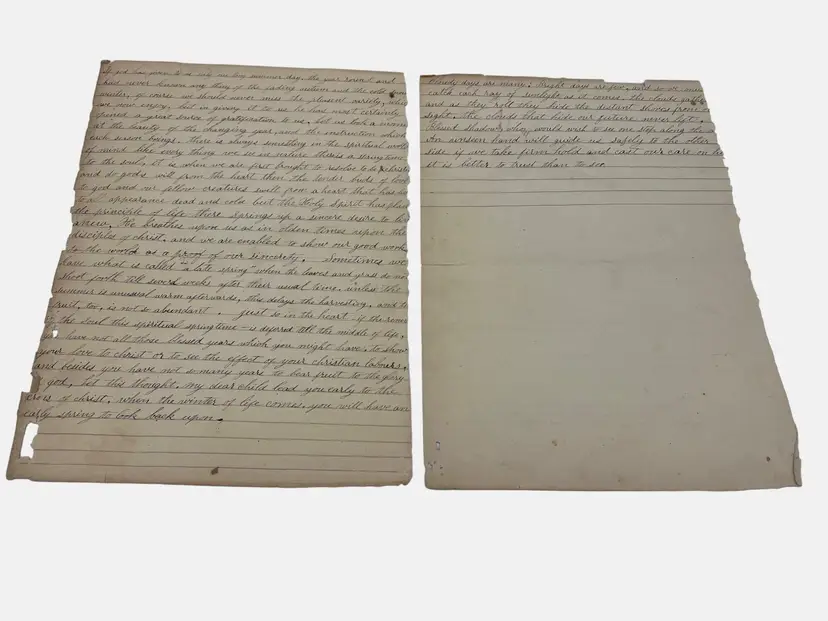 If god has given to us only one long summer day, the year round and
had never known any thing of the fading autumn and the cold
winter, of course we should never miss the pleasent variety, which
we now enjoy, but in giving it to us he has most certainly
opened a great source of gratification to us, let us look a moment
at the beauty of the changing year, and the instruction which
each season brings. there is always something in the spiritual world
of mind like every thing we see in nature there is a springtime
to the soul, it is when we are first brought to resolve to be christ
and do gods will from the heart then the tender buds of love
to god and our fellow creatures swell from a heart that has
to all appearance dead and cold but the Holy Spirit has plan
the principle of life there springs up a sincere desire to
anew. He breathes upon us as in olden times upon the
disciples of christ, and we are enabled to show our good work
to the world as a proof of our sincerety. Sometimes we
have what is called a late spring when the leaves and grass do no
shoot forth till several weeks after their usual time, unless the
summer is unusual warm afterwards, this delays the harvesting, and
fruit, too, is not so abundant. just so in the heart if the
to the soul this spiritual springtime is deferred till the middle of life,
have not all those blessed years which you might have, to show
your love to christ or to see the effect of your christian labours,
and besides you have not so many years to bear fruit to the glory
god, let this thought, my dear child lead you early to the
cross of christ, when the winter of life comes, you will have an
early spring to look back upon.
Cloudy days are many. Bright days are few, and so we
catch each ray of sunlight as it comes, the clouds gath
and as they roll they hide the distant shores from
sight, the clouds that hide our future never lift.
Blessed shadow, who, would wish to see one step along the
An unseen hand will guide us safely to the other
side if we take firm hold and cast our care on
it is better to trust than to see